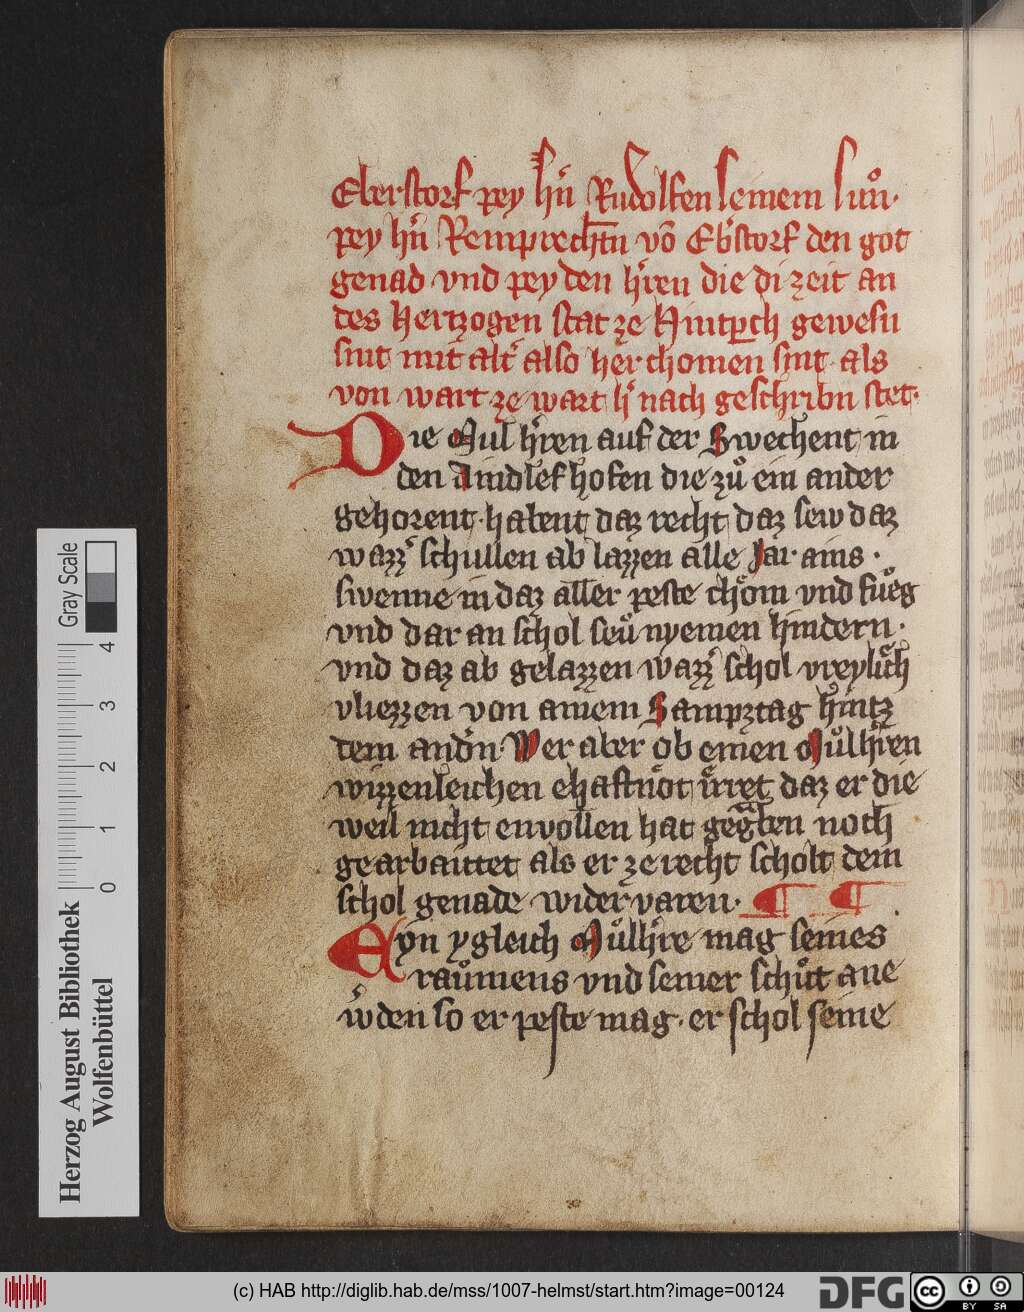 Eberstorf pey hˀn Rudolfen seinem sun·
pey hˀn Remprechtn võ Ebˀstorf den got
genad vnd pey den hˀren die di zeit an
des hertzogen stat ze Hintperch gewesn
sint mit altˀ also her chomen sint als
von wart ze wart hˀ nach geschribn stet·
Die Mul hˀren auf der Swechent in
den Aindlef hofen die zů ein ander
gehorent· habent daz recht daz sew daz
wazzˀ schullen ab lazzen alle Jar ains ·
swenne in daz aller peste chöm vnd fůeg
vnd dar an schol seu nyemen hindern·
vnd daz ab gelazzen wazzˀ schol vreylich
vliezzen von ainem Sampztag hintz
dem andˀn· Wer aber ob einen Můlhˀren
wizzenleichen ehaftnöt irret daz er die
weil nicht envollen hat gegben noch
gearbaittet als er ze recht scholt dem
schol genade wider varen· ¶ ¶
Eyn ygleich Můlhˀre mag seines
raumens vnd seiner schut ane
wˀden so er peste mag· er schol seine
Gray Scale
0 1 2 3 4
Herzog August Bibliothek
Wolfenbüttel
(c) HAB http://diglib.hab.de/mss/1007-helmst/start.htm?image=00124
DFG
cc BY SA